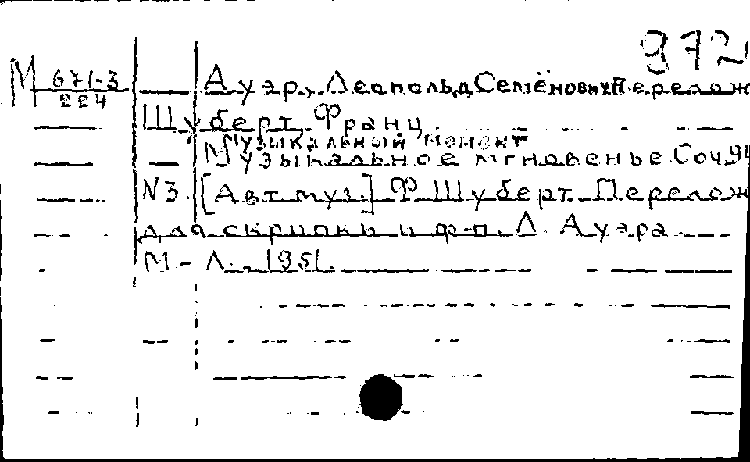 972
М 671-3
224
Ауэр, Леопольд Семёнович Перелож
Шуберт, Франц
Музыкальный момент
Музыкальное мгновенье. Соч. 94
N3. [Авт. муз.] Ф. Шуберт. Перелож
для скрипки и ф-п. Л. Ауэра.
М-Л., 1951.